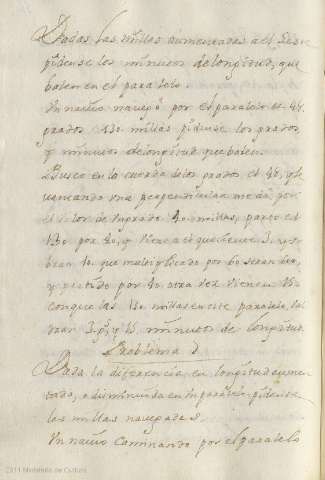 Dadas las millas aumentadas a el Les
pidense los minutos de longitud, que
balen en el paralelo
Un navio navegó por el paralelo de 48
grados 130 millas pidense los grados,
y minutos de longitud que balen.
Busco en la cuerda de los grados el 48, y le
vantando una perpendicular me da por
el valor de un grado 40 millas, parto el
130 por 40, y viene a el quociente 3, y so
bran 10 que multiplicado por 60 seran 600,
y partido por 40 otra vez vienen 15
con que las 130 millas en este paralelo, bal
dran 3 gs y 15 minutos de longitud
Problema
Dada la diferencia, en longitud aumen
tada, o disminuida en un paralelo pidense
las millas navegadas.
Un navio caminando por el paralelo
2011 Ministerio de Cultura